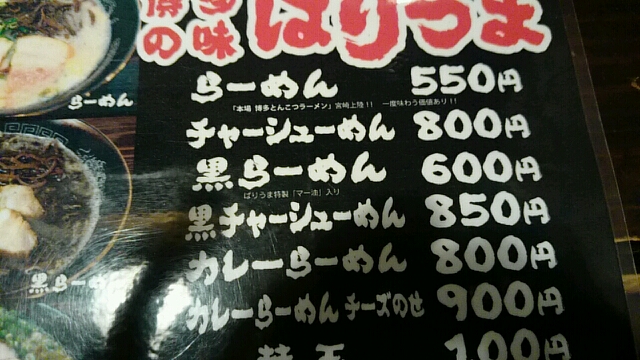 博多
の味
ばりうま
らーめん 550円
「本場 博多とんこつラーメン」宮崎上陸!! 一度味わう価値あり!!
チャーシューめん 800円
黒らーめん 600円
ばりうま特製「マー油」入り
黒チャーシューめん 850円
カレーらーめん 800円
カレーらーめん チーズのせ 900円
替玉 100円
らーめん
黒らーめん